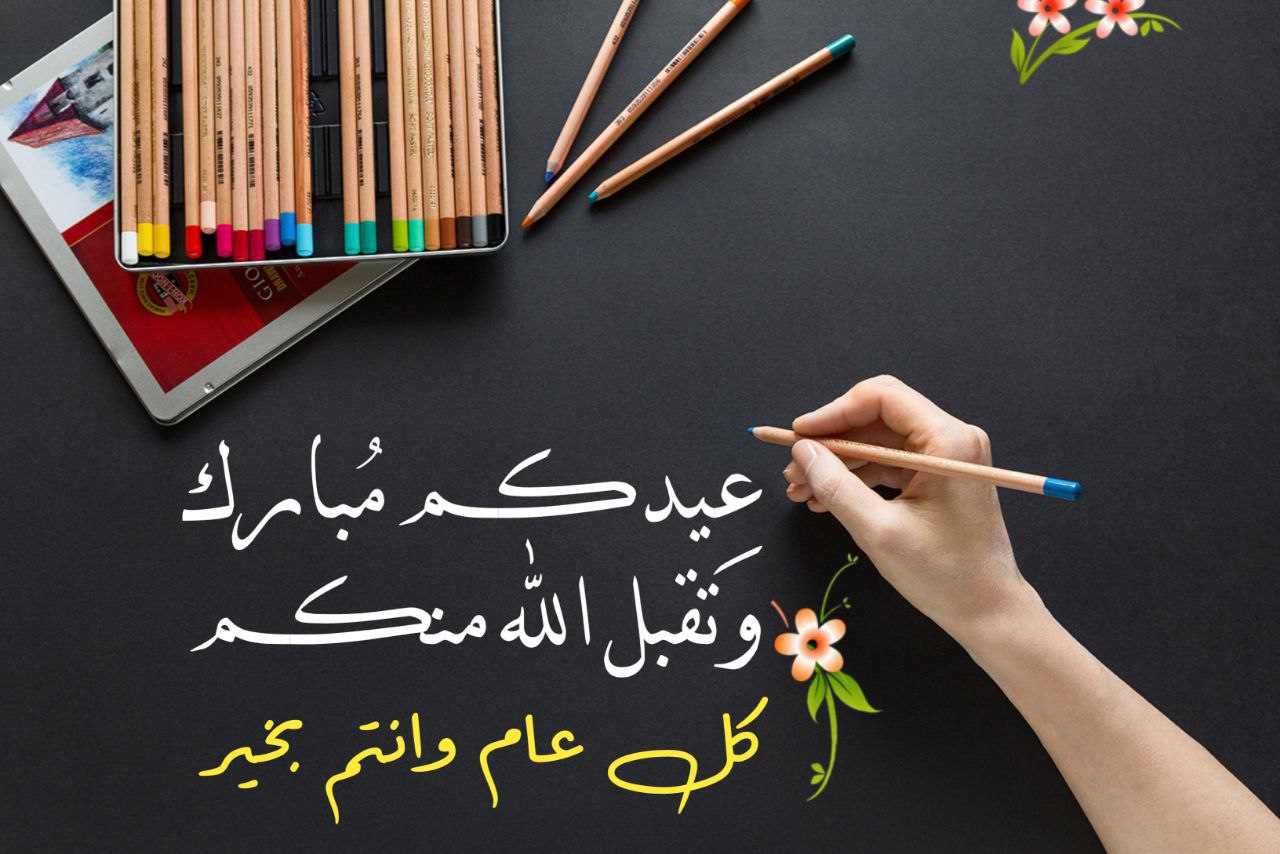 عيدكم مُبارك
وَتقبل الله منكم
كل عام وانتم بخير